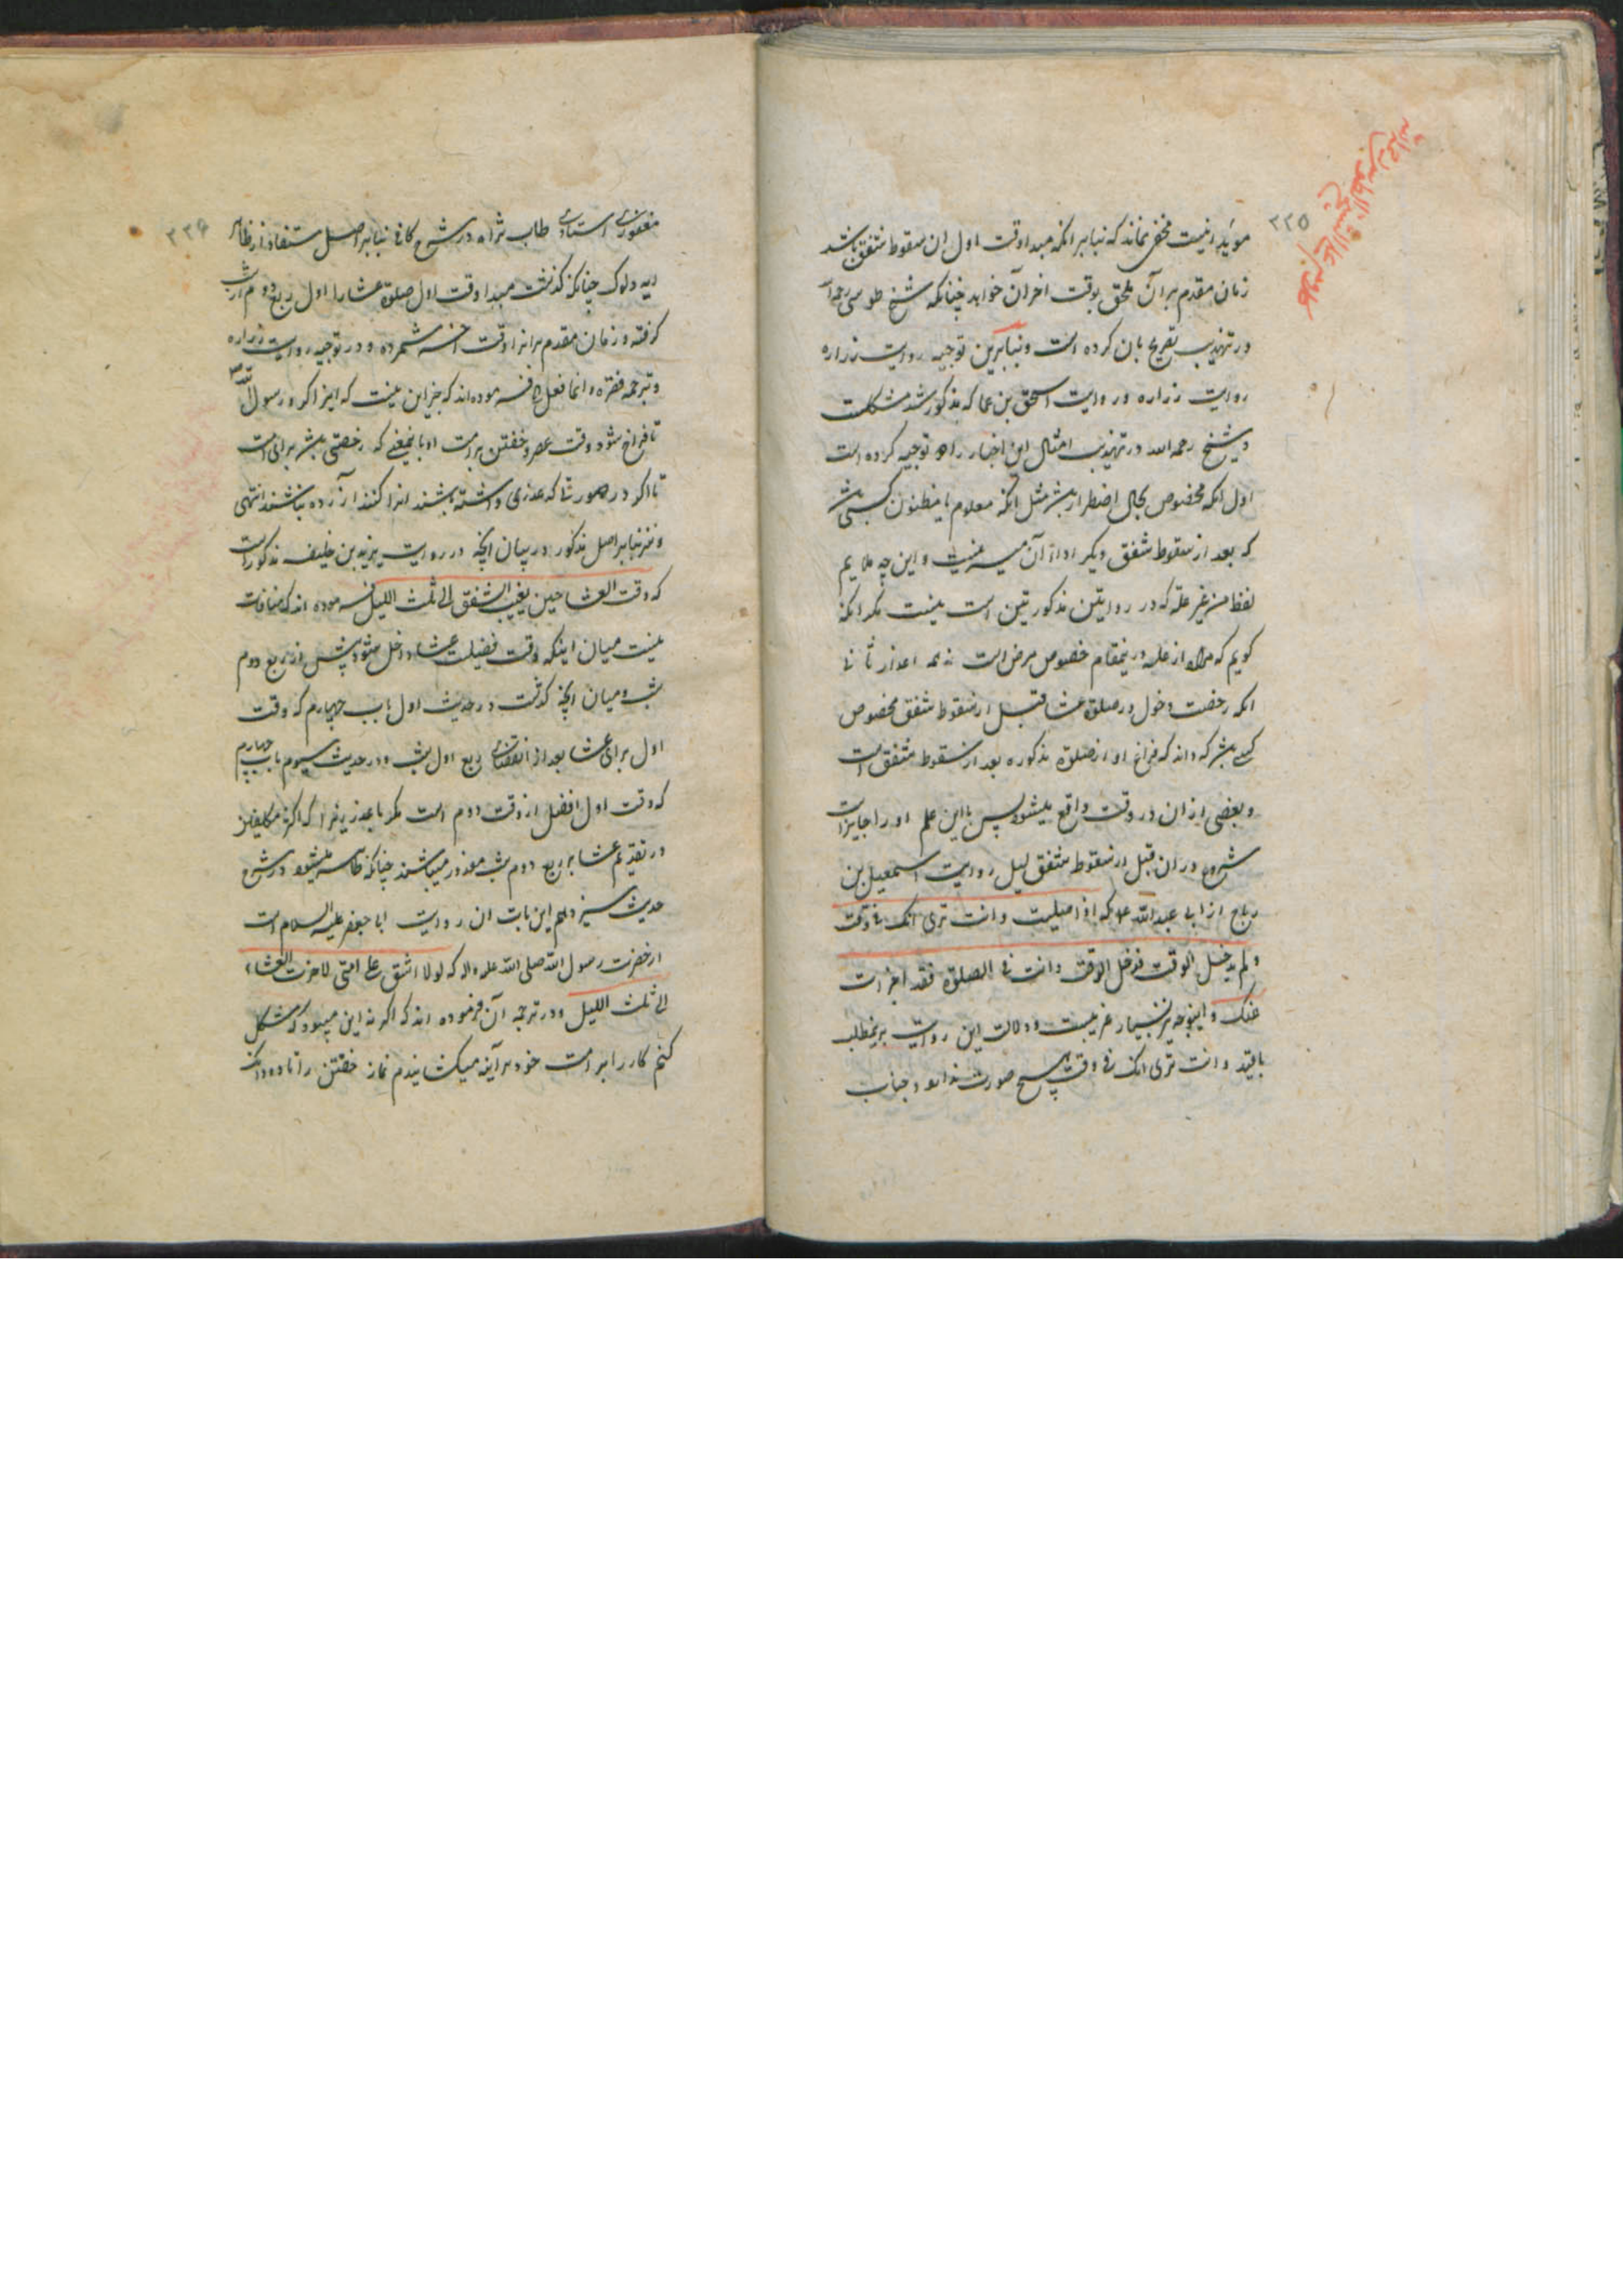 ۲۲۵
مؤید اینست مخفی نماند که بنابر انکه مبدا وقت اول ان سقوط شفق باشد
زمان مقدم بر آن ملحق بوقت اخر آن خواهد چنانکه شیخ طوسی رحمه
در تهذیب تصریح بان کرده است و بنابرین توجیه روایت زراره
روایت زراره و روایت اسحق بن عما که مذکور شد مشکلست
و شیخ رحمه الله در تهذیب امثال این اخبار را توجیه کرده است
اول انکه مخصوص بحال اضطرار باشد مثل انکه معلوم یا مظنون کسی باشد
که بعد از سقوط شفق دیگر ادای آن میسر نیست و این چه ملایم
لفظ من غیر علة که در روایتین مذکورتین است نیست مکر انکه
کویم که مراد از علة درینمقام خصوص مرض است نه همه اعذار ثانی
انکه رخصت دخول در صلوة عشا قبل از سقوط شفق مخصوص
کسی باشد که داند که فراغ او از صلوة مذکوره بعد از سقوط شفق است
و بعضی از ان در وقت واقع میشود پس با این علم او را جایز است
شروع در ان قبل از سقوط شفق لیل روایت اسمعیل بن
رباح از ابی عبد الله ع که اذا صلیت و انت تری انک فی وقت
و لم یدخل الوقت فدخل الوقت و انت فی الصلوة فقد اجزات
عنک و اینوجه نیز بسیار غریبست و دلالت این روایت برینمطلب
باقید و انت تری انک فی وقت هیچ صورت ندارد و جناب
۲۲۶
مغفوری استادی طاب ثراه در شرح کافی بنابر اصل مستفاد از ظاهر
ایه دلوک چنانکه کذشت مبدا وقت اول صلوة عشا را اول ربع دوم از شب
کرفته و زمان مقدم بر انرا وقت اخر شمرده و در توجیه روایت زراره
و ترجمه فقره و انما فعل فرموده اند که جز این نیست که اینرا کرد رسول الله ص
تا فراخ شود وقت عصر و خفتن بر امت او باینمعنی که رخصتی باشد برای امت
تا اکر در صورتی که عذری داشته باشند انرا کنند ازرده نباشند انتهی
و نیز بنابر اصل مذکور در بیان انچه در روایت یزید بن خلیفه مذکور است
که وقت العشا حین یغیب الشفق الی ثلث اللیل فرموده اند که منافات
نیست میان اینکه وقت فضیلت عشا داخل شود پیش از ربع دوم
شب و میان انچه کذشت در حدیث اول باب چهارم که وقت
اول برای عشا بعد از انقضای ربع اول شب و در حدیث سیوم باب چهارم
که وقت اول افضل از وقت دوم است مکر با عذر زیرا که اکثر مکلفین
در تقدیم عشا بر ربع دوم شب معذور میباشند چنانکه ظاهر میشود در شرح
حدیث سیزدهم این باب ان روایت ابا جعفر علیه السلام است
از حضرت رسول الله صلی الله علیه و اله که لولا اشق علی امتی لاخرت العشاء
الی ثلث اللیل و در ترجمه آن فرموده اند که اکر نه این میبود که مشکل
کنم کار را بر امت خود هر آینه میکشانیدم نماز خفتن را تا دو دانک